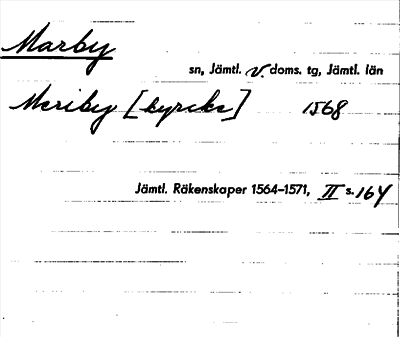 Marby
sn, Jämtl. v. doms. tg, Jämtl. län
Meriby [kyrcke] 1568
Jämtl. Räkenskaper 1564–1571, II s. 164